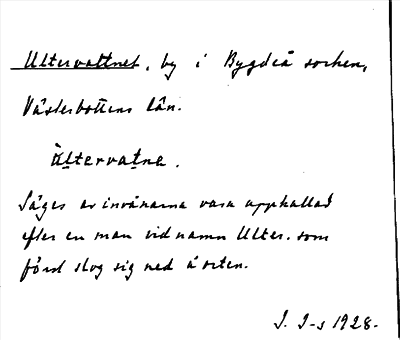 Ultervattnet, by i Bygdeå socken,
Västerbottens län.
Ạ̈ḷtervaṭne.
Säges av invånarna vara uppkallad
efter en man vid namn Ulter. som
först slog sig ned å orten.
J. I-s 1928.